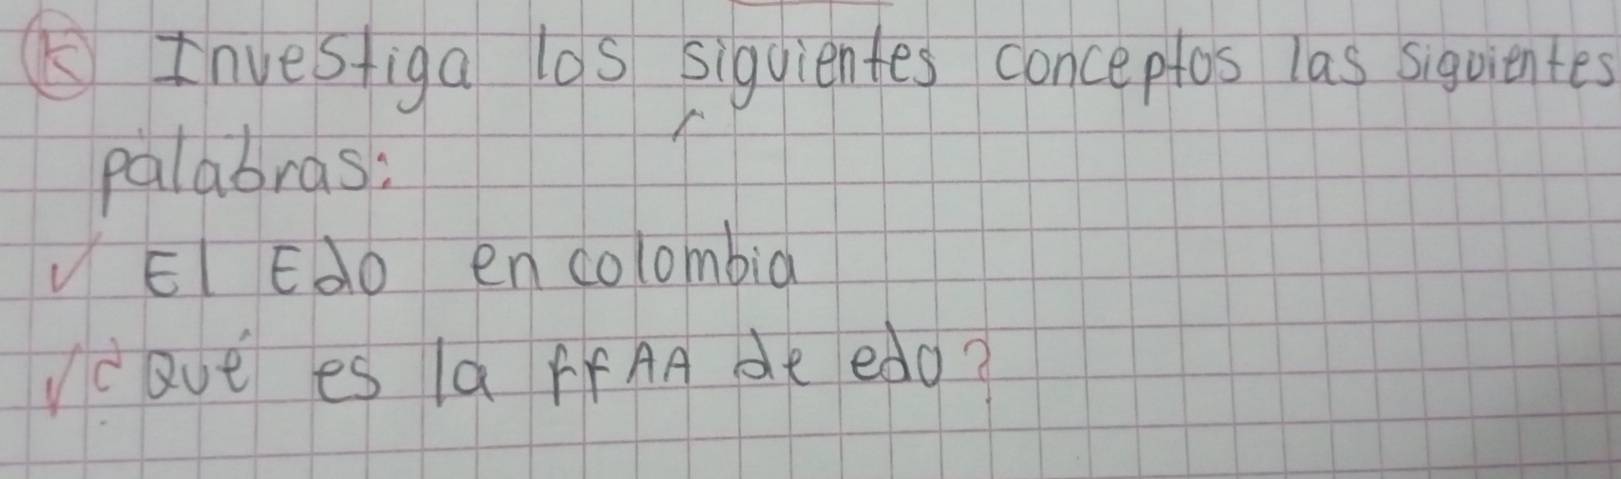 K Investiga los siguientes conceptos las siguientes
palabras:
✓ El Edo en colombia
✓ ¿Qué es la FFAA de edo?